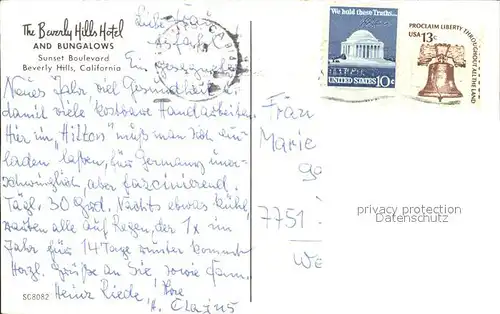 The Beverly Hills Hotel
AND BUNGALOWS
Sunset Boulevard
Beverly Hills, California
Liebe Frau
Ein gesegnetes
Neues Jahr viel Gesundheit
damit viele kostbare Handarbeiten.
Hier im „Hilton" muß man sich ein-
laden laßen, für Germany uner-
schwinglich, aber faszinierend.
Tägl. 30 Grad. Nachts etwas kühl,
warten alle auf Regen, der 1x im
Jahr für 14 Tage runter kommt
Herzl. Grüße an Sie, sowie Fam.
Ihre
Heinz
H.
SC8082
We hold these Truths...
UNITED STATES 10c
PROCLAIM LIBERTY THROUGHOUT ALL THE LAND
USA 13c
Frau
Marie
7751
privacy protection
Datenschutz